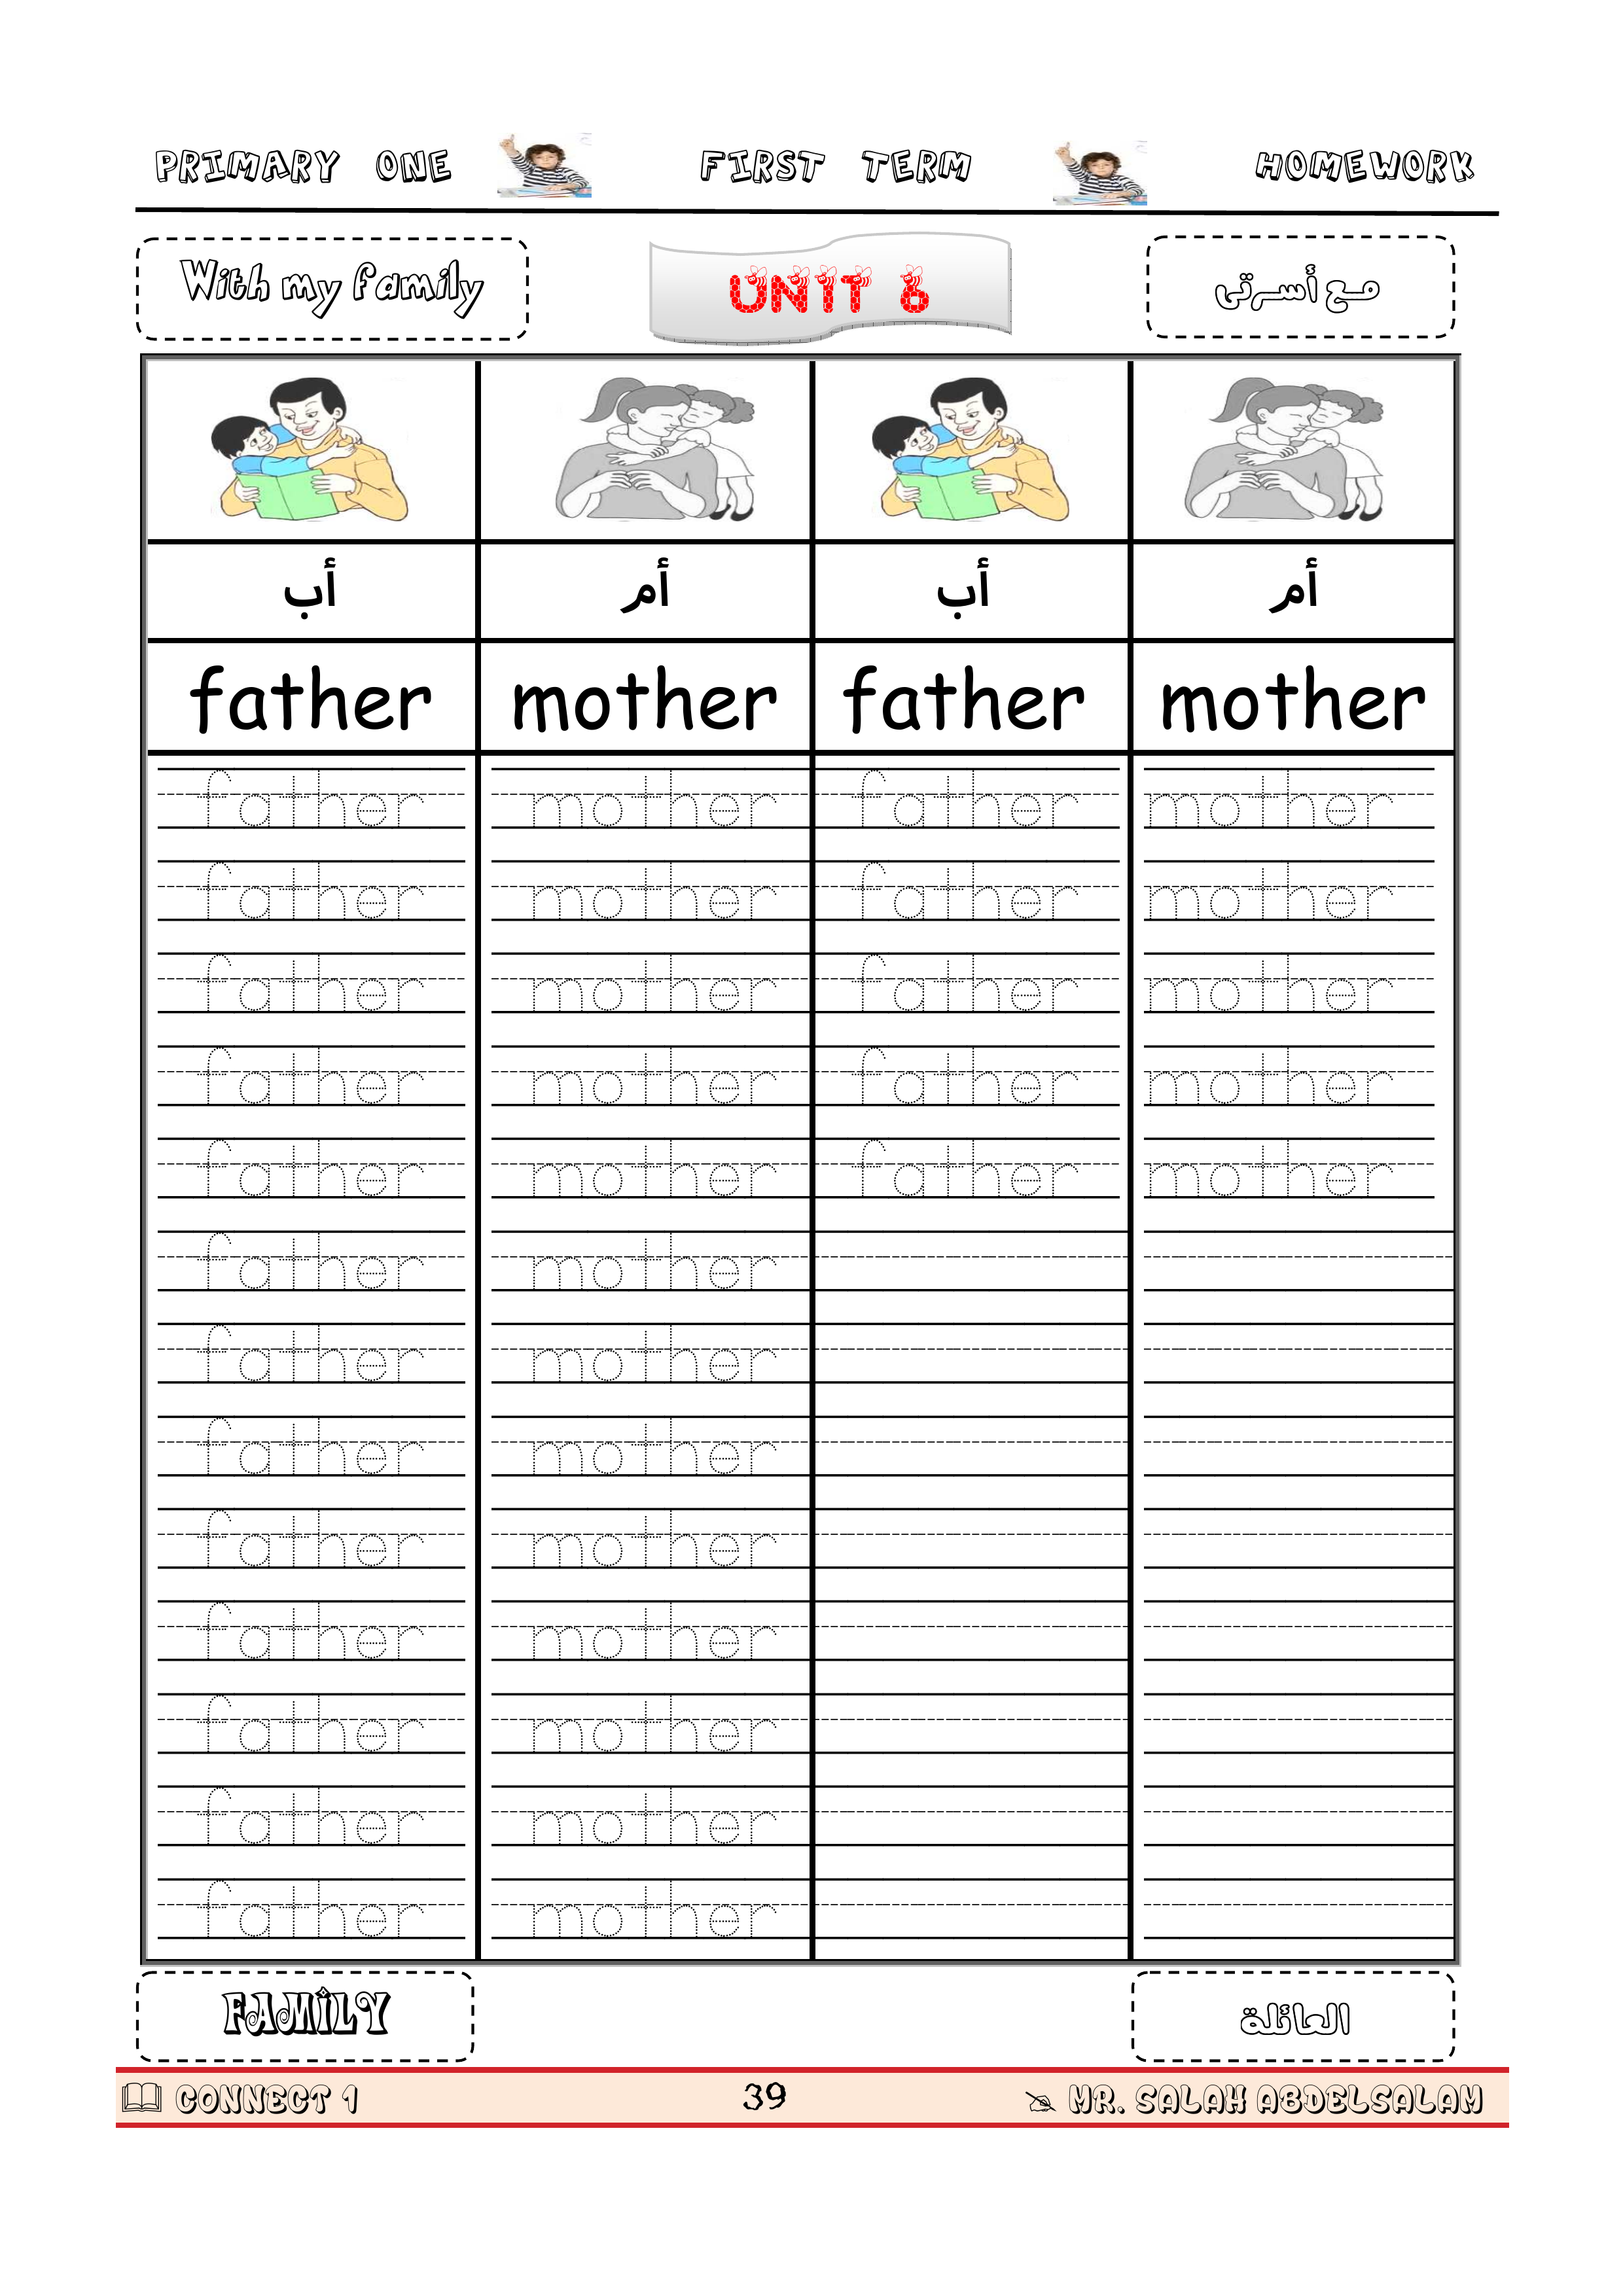 PRIMARY ONE FIRST TERM HOMEWORK
With my family UNIT 6 مع أسرتى
أب أم أب أم
father mother father mother
father mother father mother
father mother father mother
father mother father mother
father mother father mother
father mother father mother
father mother
father mother
father mother
father mother
father mother
father mother
father mother
father mother
FAMILY العائلة
CONNECT 1 39 MR. SALAH ABDELSALAM